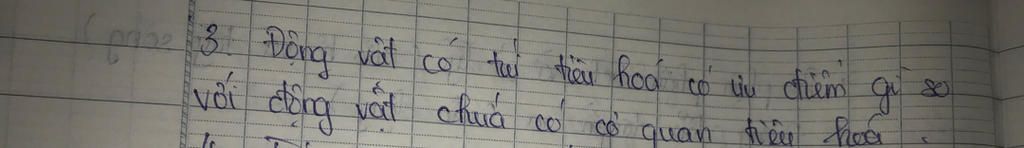 3. Động vật có túi tiêu hoá có ưu điểm gì so
với động vật chưa có cơ quan tiêu hoá.